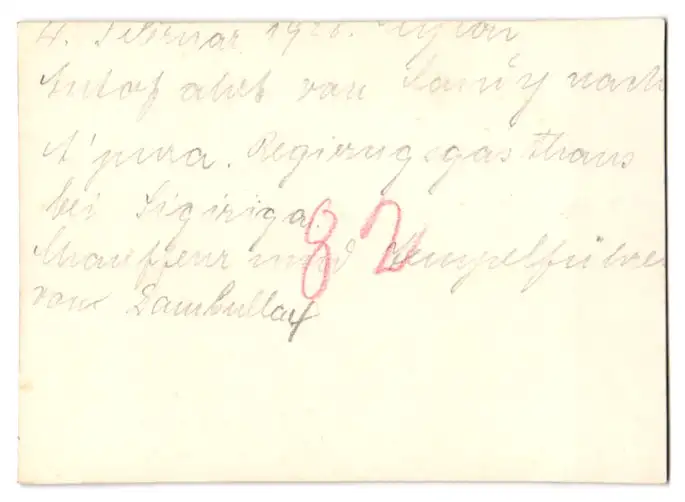 4. Februar 192 . Ceylon
Autofahrt von Kandy nach
A'pura. Regierugsgasthaus
bei Sigiriya.
82
Chauffeur und Tempelführer
von Dambulla